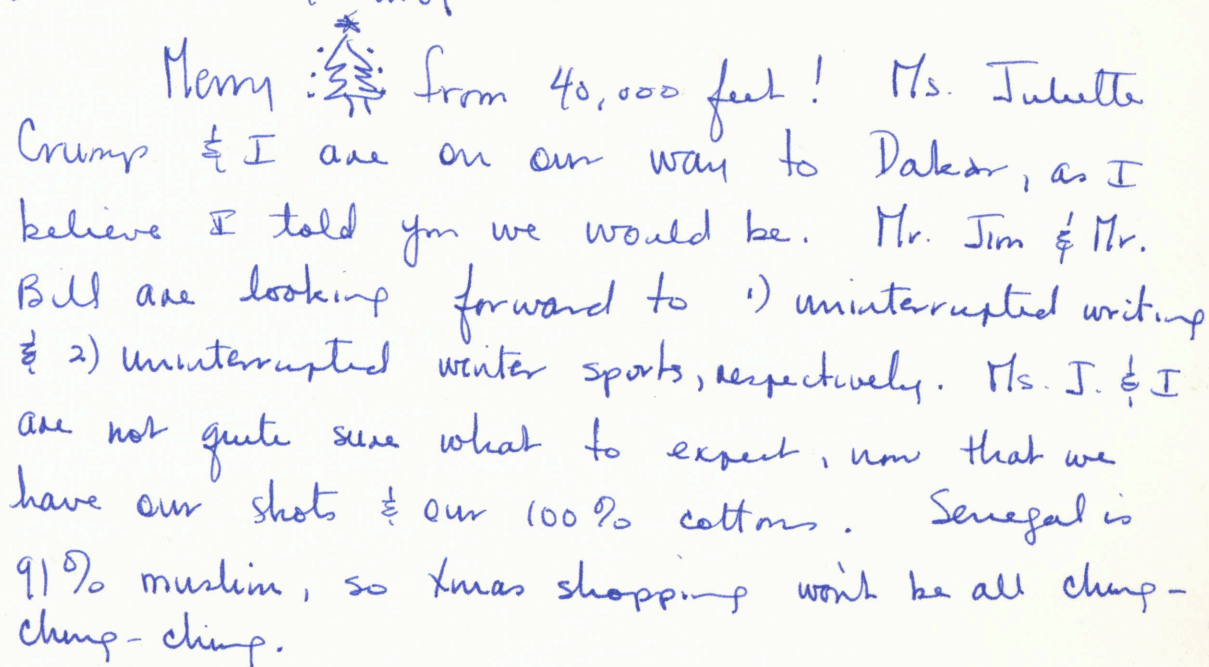 Merry from 40,000 feet! Ms. Juliette
Crump & I are on our way to Dakar, as I
believe I told you we would be. Mr. Jim & Mr.
Bill are looking forward to 1) uninterrupted writing
& 2) uninterrupted winter sports, respectively. Ms. J. & I
are not quite sure what to expect, now that we
have our shots & our 100% cottons. Senegal is
91% muslim, so Xmas shopping won't be all ching-
ching-ching.